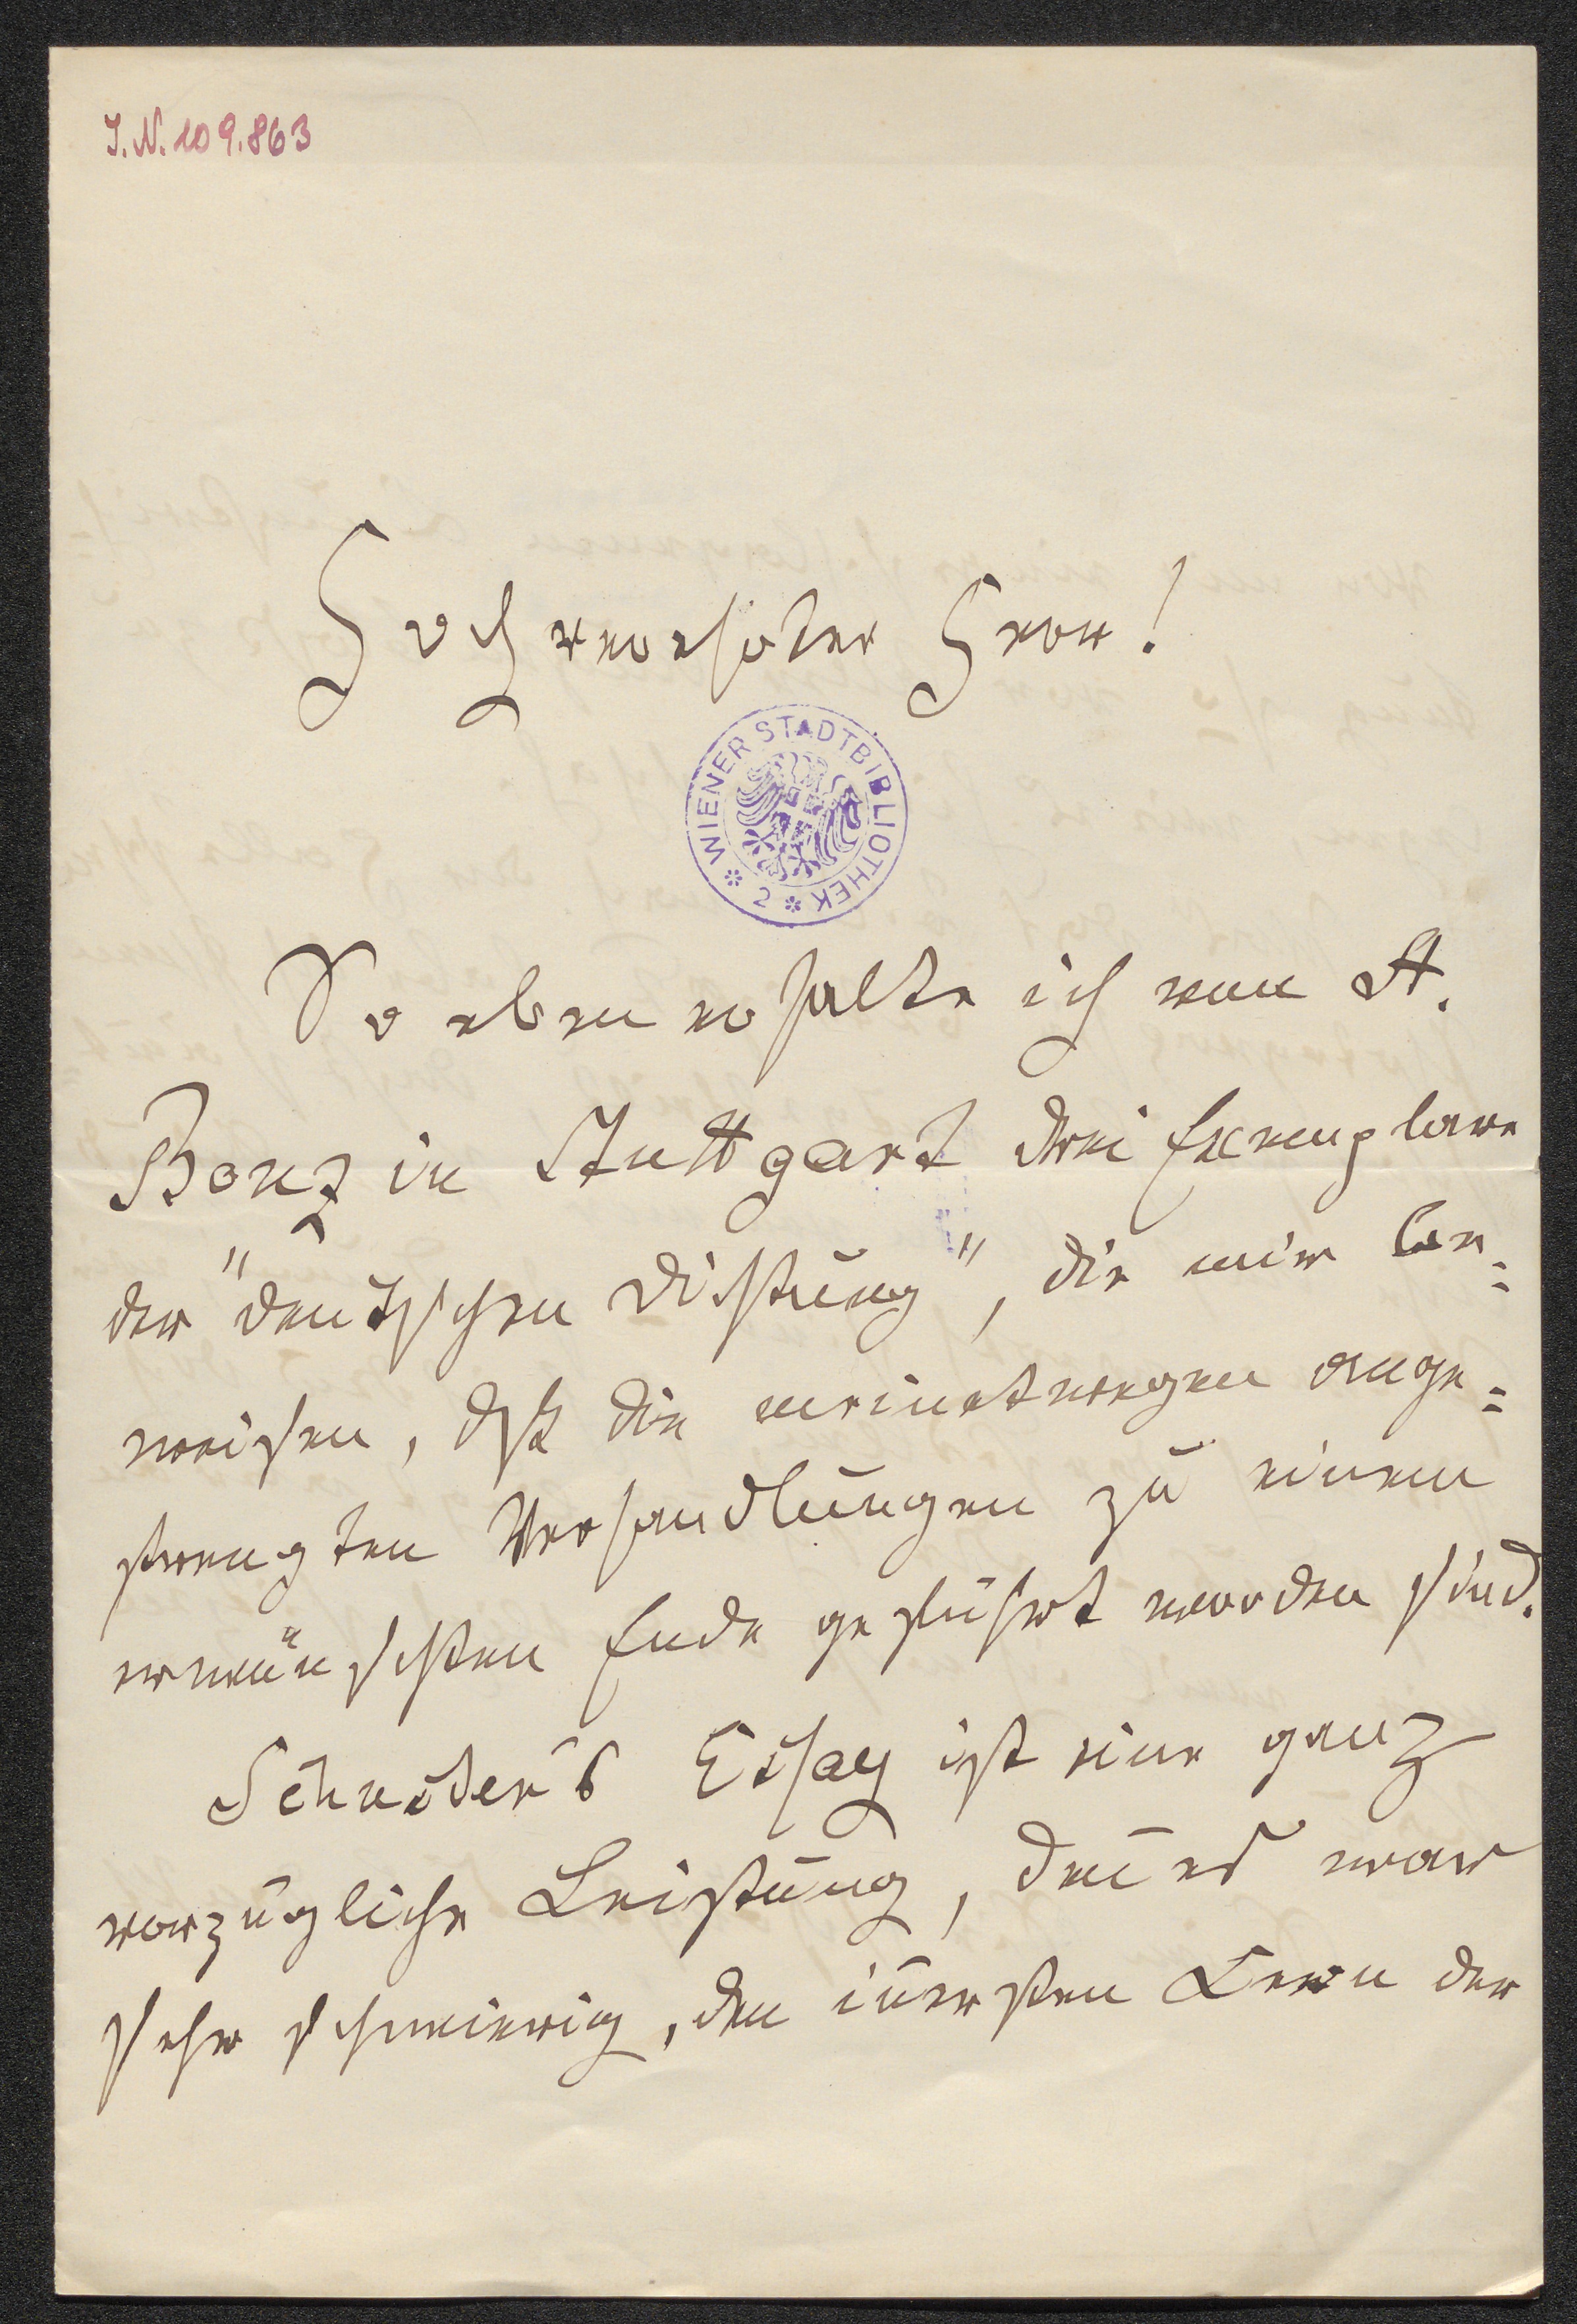 I.N. 109.863
Hochverehrter Herr!
WIENER STADTBIBLIOTHEK 2
So eben erhalte ich von A.
Bonz in Stuttgart drei Exemplare
der "deutschen Dichtung", die mir be=
weisen, dß die meinetwegen ange=
strengten Verhandlungen zu einem
erwünschten Ende geführt worden sind.
Essay ist eine ganz
vorzügliche Leistung, den̄ es war
sehr schwierig, den in̄ersten Kern der